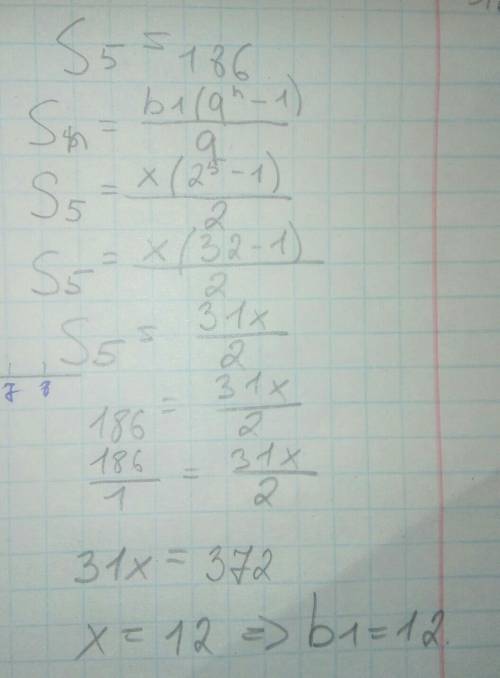 S5 = 186
Sn = b1(q^n - 1) / q
S5 = x(2^5 - 1) / 2
S5 = x(32 - 1) / 2
S5 = 31x / 2
7 8
186 = 31x / 2
186 / 1 = 31x / 2
31x = 372
x = 12 => b1 = 12.